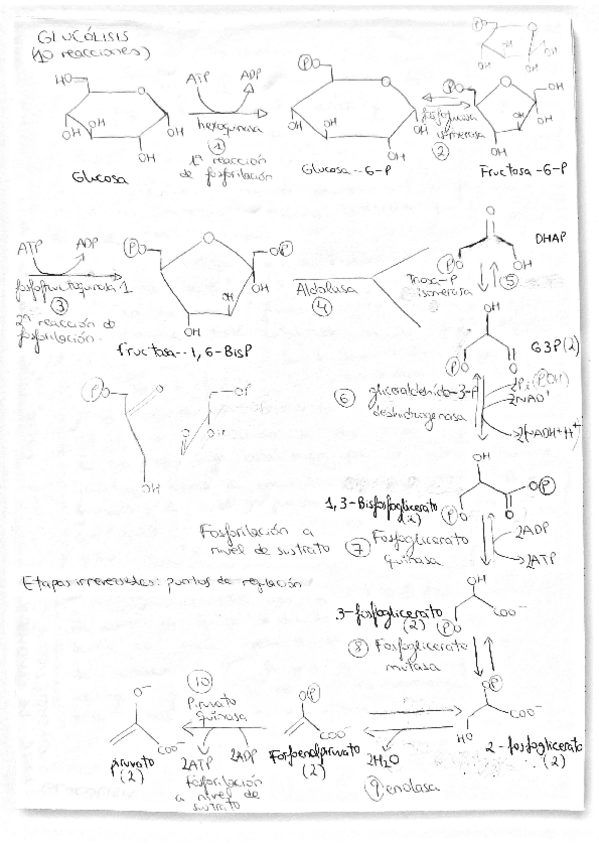 GLUCÓLISIS
(10 reacciones)
HO
O
OH
OH
OH
OH
Glucosa
ATP
ADP
hexoquinasa
1
1ª reacción
de fosforilación
PO
O
OH
OH
OH
OH
Glucosa-6-P
fosfoglucosa
isomerasa
2
PO
O
OH
OH
OH
OH
Fructosa-6-P
ATP
ADP
fosfofructoquinasa 1
3
2ª reacción de
fosforilación
PO
O
OP
OH
OH
OH
Fructosa-1,6-BisP
Aldolasa
4
O
DHAP
PO
OH
Triosa-P
isomerasa
5
OH
G3P (2)
PO
O
6
gliceraldehído-3-P
deshidrogenasa
2Pi (POH)
2NAD+
2NADH+H+
OH
OP
O
PO
1,3-Bisfosfoglicerato
(2)
Fosforilación a
nivel de sustrato
7
Fosfoglicerato
quinasa
2ADP
2ATP
Etapas irreversibles: puntos de regulación
OH
COO-
PO
3-fosfoglicerato
(2)
8
Fosfoglicerato
mutasa
OP
COO-
HO
2-fosfoglicerato
(2)
9
enolasa
2H2O
OP
COO-
Fosfoenolpiruvato
(2)
10
Piruvato
quinasa
2ADP
2ATP
Fosforilación
a nivel de
sustrato
O-
COO-
piruvato
(2)